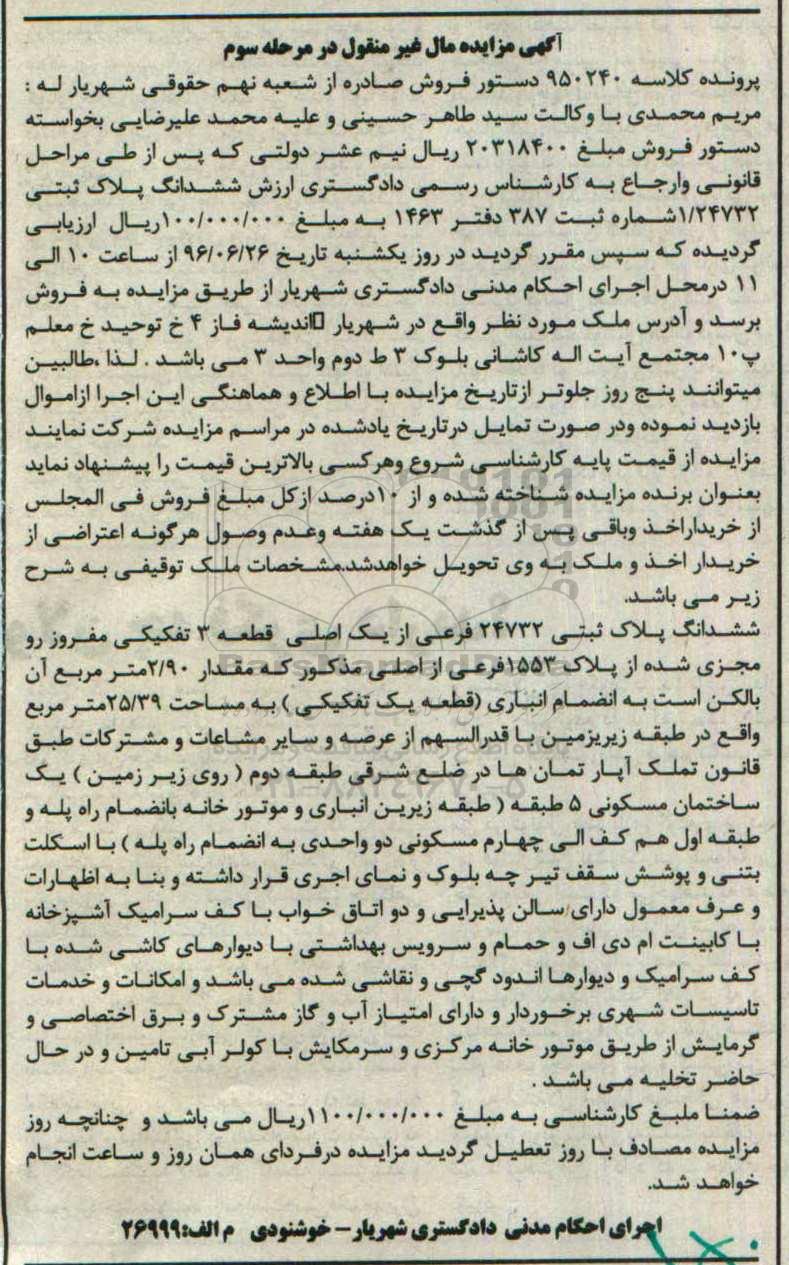 آگهی مزایده مال غیر منقول در مرحله سوم
پرونده کلاسه ۹۵۰۲۴۰ دستور فروش صادره از شعبه نهم حقوقی شهریار له :
مریم محمدی با وکالت سید طاهر حسینی و علیه محمد علیرضایی بخواسته
دستور فروش مبلغ ۲۰۳۱۸۴۰۰ ریال نیم عشر دولتی که پس از طی مراحل
قانونی وارجاع به کارشناس رسمی دادگستری ارزش ششدانگ پلاک ثبتی
۱/۲۴۷۳۲شماره ثبت ۳۸۷ دفتر ۱۴۶۳ به مبلغ ۱۱۰۰/۰۰۰/۰۰۰ریال ارزیابی
گردیده که سپس مقرر گردید در روز یکشنبه تاریخ ۹۶/۰۶/۲۶ از ساعت ۱۰ الی
۱۱ درمحل اجرای احکام مدنی دادگستری شهریار از طریق مزایده به فروش
برسد و آدرس ملک مورد نظر واقع در شهریار اندیشه فاز ۴ خ توحید خ معلم
پ۱۰ مجتمع آیت اله کاشانی بلوک ۳ ط دوم واحد ۳ می باشد . لذا ،طالبین
میتوانند پنج روز جلوتر ازتاریخ مزایده با اطلاع و هماهنگی این اجرا ازاموال
بازدید نموده ودر صورت تمایل درتاریخ یادشده در مراسم مزایده شرکت نمایند
مزایده از قیمت پایه کارشناسی شروع وهرکسی بالاترین قیمت را پیشنهاد نماید
بعنوان برنده مزایده شناخته شده و از ۱۰درصد ازکل مبلغ فروش فی المجلس
از خریداراخذ وباقی پس از گذشت یک هفته وعدم وصول هرگونه اعتراضی از
خریدار اخذ و ملک به وی تحویل خواهدشد.مشخصات ملک توقیفی به شرح
زیر می باشد.
ششدانگ پلاک ثبتی ۲۴۷۳۲ فرعی از یک اصلی قطعه ۳ تفکیکی مفروز رو
مجزی شده از پلاک ۱۵۵۳فرعی از اصلی مذکور که مقدار ۲/۹۰متر مربع آن
بالکن است به انضمام انباری (قطعه یک تفکیکی ) به مساحت ۲۵/۳۹متر مربع
واقع در طبقه زیریزمین با قدرالسهم از عرصه و سایر مشاعات و مشترکات طبق
قانون تملک آپار تمان ها در ضلع شرقی طبقه دوم ( روی زیر زمین ) یک
ساختمان مسکونی ۵ طبقه ( طبقه زیرین انباری و موتور خانه بانضمام راه پله و
طبقه اول هم کف الی چهارم مسکونی دو واحدی به انضمام راه پله ) با اسکلت
بتنی و پوشش سقف تیر چه بلوک و نمای اجری قرار داشته و بنا به اظهارات
و عرف معمول دارای سالن پذیرایی و دو اتاق خواب با کف سرامیک آشپزخانه
با کابینت ام دی اف و حمام و سرویس بهداشتی با دیوارهای کاشی شده با
کف سرامیک و دیوارها اندود گچی و نقاشی شده می باشد و امکانات و خدمات
تاسیسات شهری برخوردار و دارای امتیاز آب و گاز مشترک و برق اختصاصی و
گرمایش از طریق موتور خانه مرکزی و سرمکایش با کولر آبی تامین و در حال
حاضر تخلیه می باشد .
ضمنا ملبغ کارشناسی به مبلغ ۱۱۰۰/۰۰۰/۰۰۰ریال می باشد و چنانچه روز
مزایده مصادف با روز تعطیل گردید مزایده درفردای همان روز و ساعت انجام
خواهد شد.
اجرای احکام مدنی دادگستری شهریار– خوشنودی م الف:۲۶۹۹۹